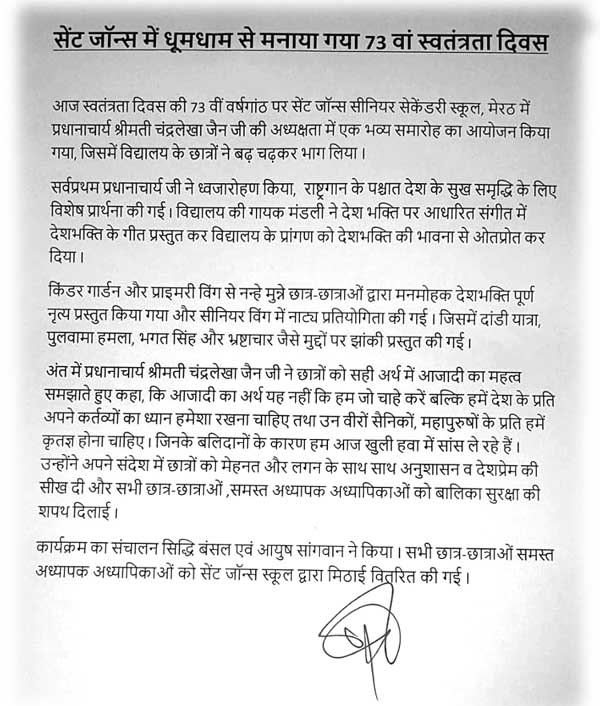 सेंट जॉन्स में धूमधाम से मनाया गया 73 वां स्वतंत्रता दिवस
आज स्वतंत्रता दिवस की 73 वीं वर्षगांठ पर सेंट जॉन्स सीनियर सेकेंडरी स्कूल, मेरठ में
प्रधानाचार्य श्रीमती चंद्रलेखा जैन जी की अध्यक्षता में एक भव्य समारोह का आयोजन किया
गया, जिसमें विद्यालय के छात्रों ने बढ़ चढ़कर भाग लिया ।
सर्वप्रथम प्रधानाचार्य जी ने ध्वजारोहण किया, राष्ट्रगान के पश्चात देश के सुख समृद्धि के लिए
विशेष प्रार्थना की गई । विद्यालय की गायक मंडली ने देश भक्ति पर आधारित संगीत में
देशभक्ति के गीत प्रस्तुत कर विद्यालय के प्रांगण को देशभक्ति की भावना से ओतप्रोत कर
दिया ।
किंडर गार्डन और प्राइमरी विंग से नन्हे मुन्ने छात्र-छात्राओं द्वारा मनमोहक देशभक्ति पूर्ण
नृत्य प्रस्तुत किया गया और सीनियर विंग में नाट्य प्रतियोगिता की गई । जिसमें दांडी यात्रा,
पुलवामा हमला, भगत सिंह और भ्रष्टाचार जैसे मुद्दों पर झांकी प्रस्तुत की गई ।
अंत में प्रधानाचार्य श्रीमती चंद्रलेखा जैन जी ने छात्रों को सही अर्थ में आजादी का महत्व
समझाते हुए कहा, कि आजादी का अर्थ यह नहीं कि हम जो चाहे करें बल्कि हमें देश के प्रति
अपने कर्तव्यों का ध्यान हमेशा रखना चाहिए तथा उन वीरों सैनिकों, महापुरुषों के प्रति हमें
कृतज्ञ होना चाहिए । जिनके बलिदानों के कारण हम आज खुली हवा में सांस ले रहे हैं ।
उन्होंने अपने संदेश में छात्रों को मेहनत और लगन के साथ साथ अनुशासन व देशप्रेम की
सीख दी और सभी छात्र-छात्राओं ,समस्त अध्यापक अध्यापिकाओं को बालिका सुरक्षा की
शपथ दिलाई ।
कार्यक्रम का संचालन सिद्धि बंसल एवं आयुष सांगवान ने किया । सभी छात्र-छात्राओं समस्त
अध्यापक अध्यापिकाओं को सेंट जॉन्स स्कूल द्वारा मिठाई वितरित की गई ।